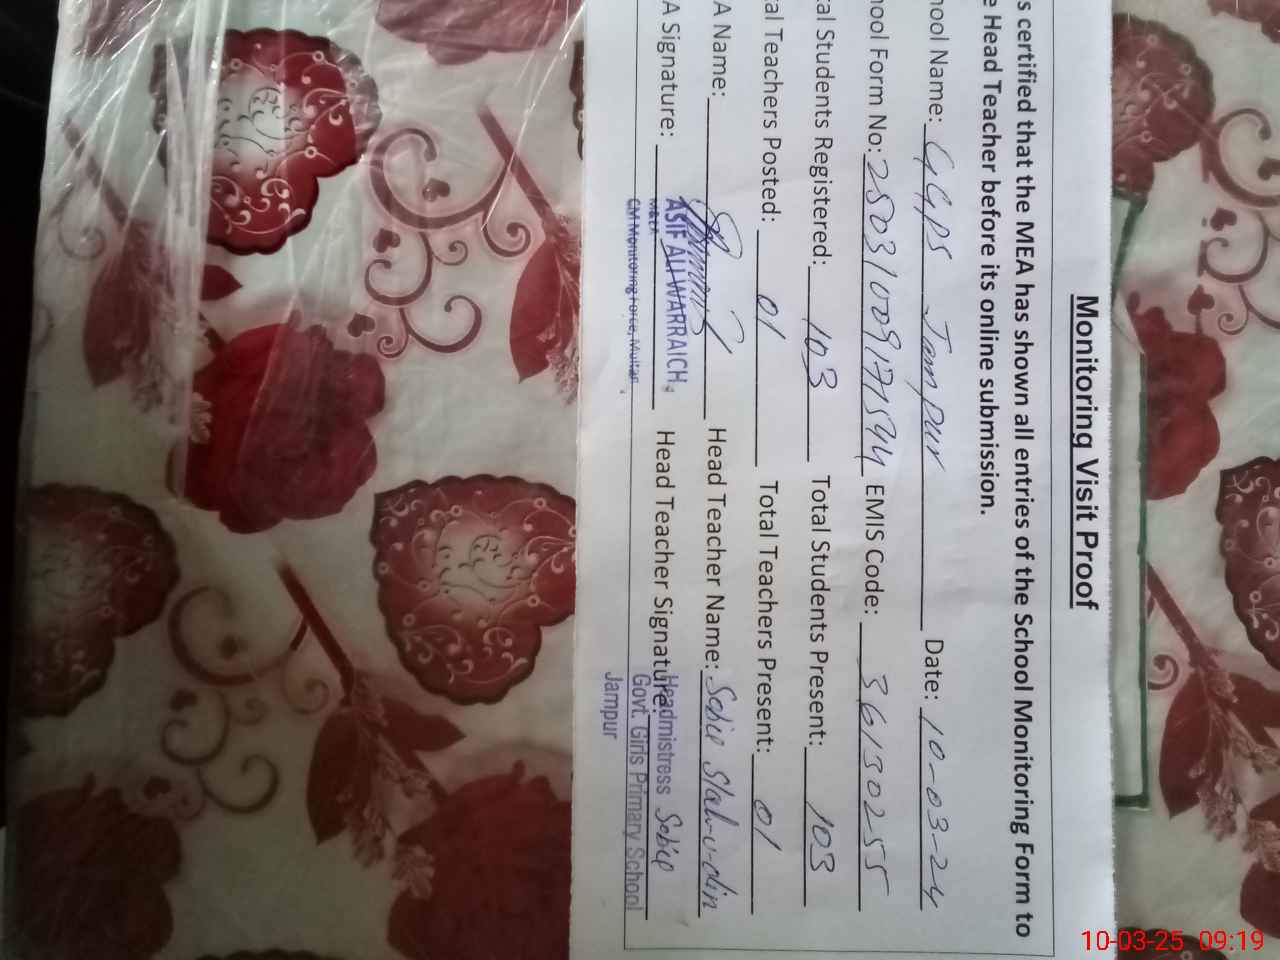 Monitoring Visit Proof
s certified that the MEA has shown all entries of the School Monitoring Form to
e Head Teacher before its online submission.
ool Name: GGPS Jampur Date: 10-03-24
ool Form No: 28031009171544 EMIS Code: 36130255
al Students Registered: 103 Total Students Present: 103
al Teachers Posted: 01 Total Teachers Present: 01
A Name: Head Teacher Name:
A Signature: Head Teacher Signature: Sobia
ASIF ALI WARRAICH
CM Monitoring Force, Multan
Headmistress
Govt. Girls Primary School
Jampur
10-03-25 09:19